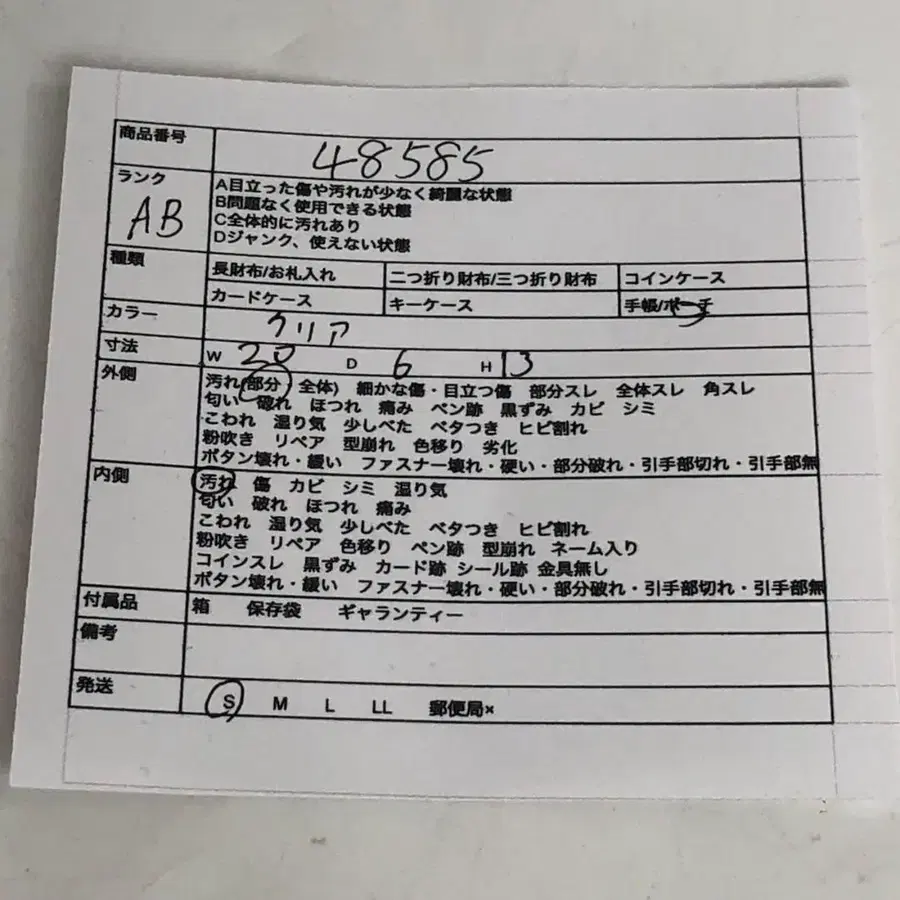 商品番号 48585
ランク AB
A目立った傷や汚れが少なく綺麗な状態
B問題なく使用できる状態
C全体的に汚れあり
Dジャンク、使えない状態
種類
長財布/お札入れ 二つ折り財布/三つ折り財布 コインケース
カードケース キーケース 手帳/ポーチ
カラー クリア
寸法 W 20 D 6 H 13
外側
汚れ(部分 全体) 細かな傷・目立つ傷 部分スレ 全体スレ 角スレ
匂い 破れ ほつれ 痛み ペン跡 黒ずみ カビ シミ
こわれ 湿り気 少しべた ベタつき ヒビ割れ
粉吹き リペア 型崩れ 色移り 劣化
ボタン壊れ・緩い ファスナー壊れ・硬い・部分破れ・引手部切れ・引手部無
内側
汚れ 傷 カビ シミ 湿り気
匂い 破れ ほつれ 痛み
こわれ 湿り気 少しべた ベタつき ヒビ割れ
粉吹き リペア 色移り ペン跡 型崩れ ネーム入り
コインスレ 黒ずみ カード跡 シール跡 金具無し
ボタン壊れ・緩い ファスナー壊れ・硬い・部分破れ・引手部切れ・引手部無
付属品 箱 保存袋 ギャランティー
備考
発送 S M L LL 郵便局×